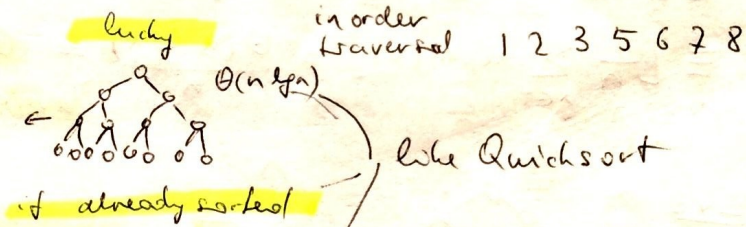 lucky
in order
traversal 1 2 3 5 6 7 8
Θ(n lgn)
like Quicksort
if already sorted